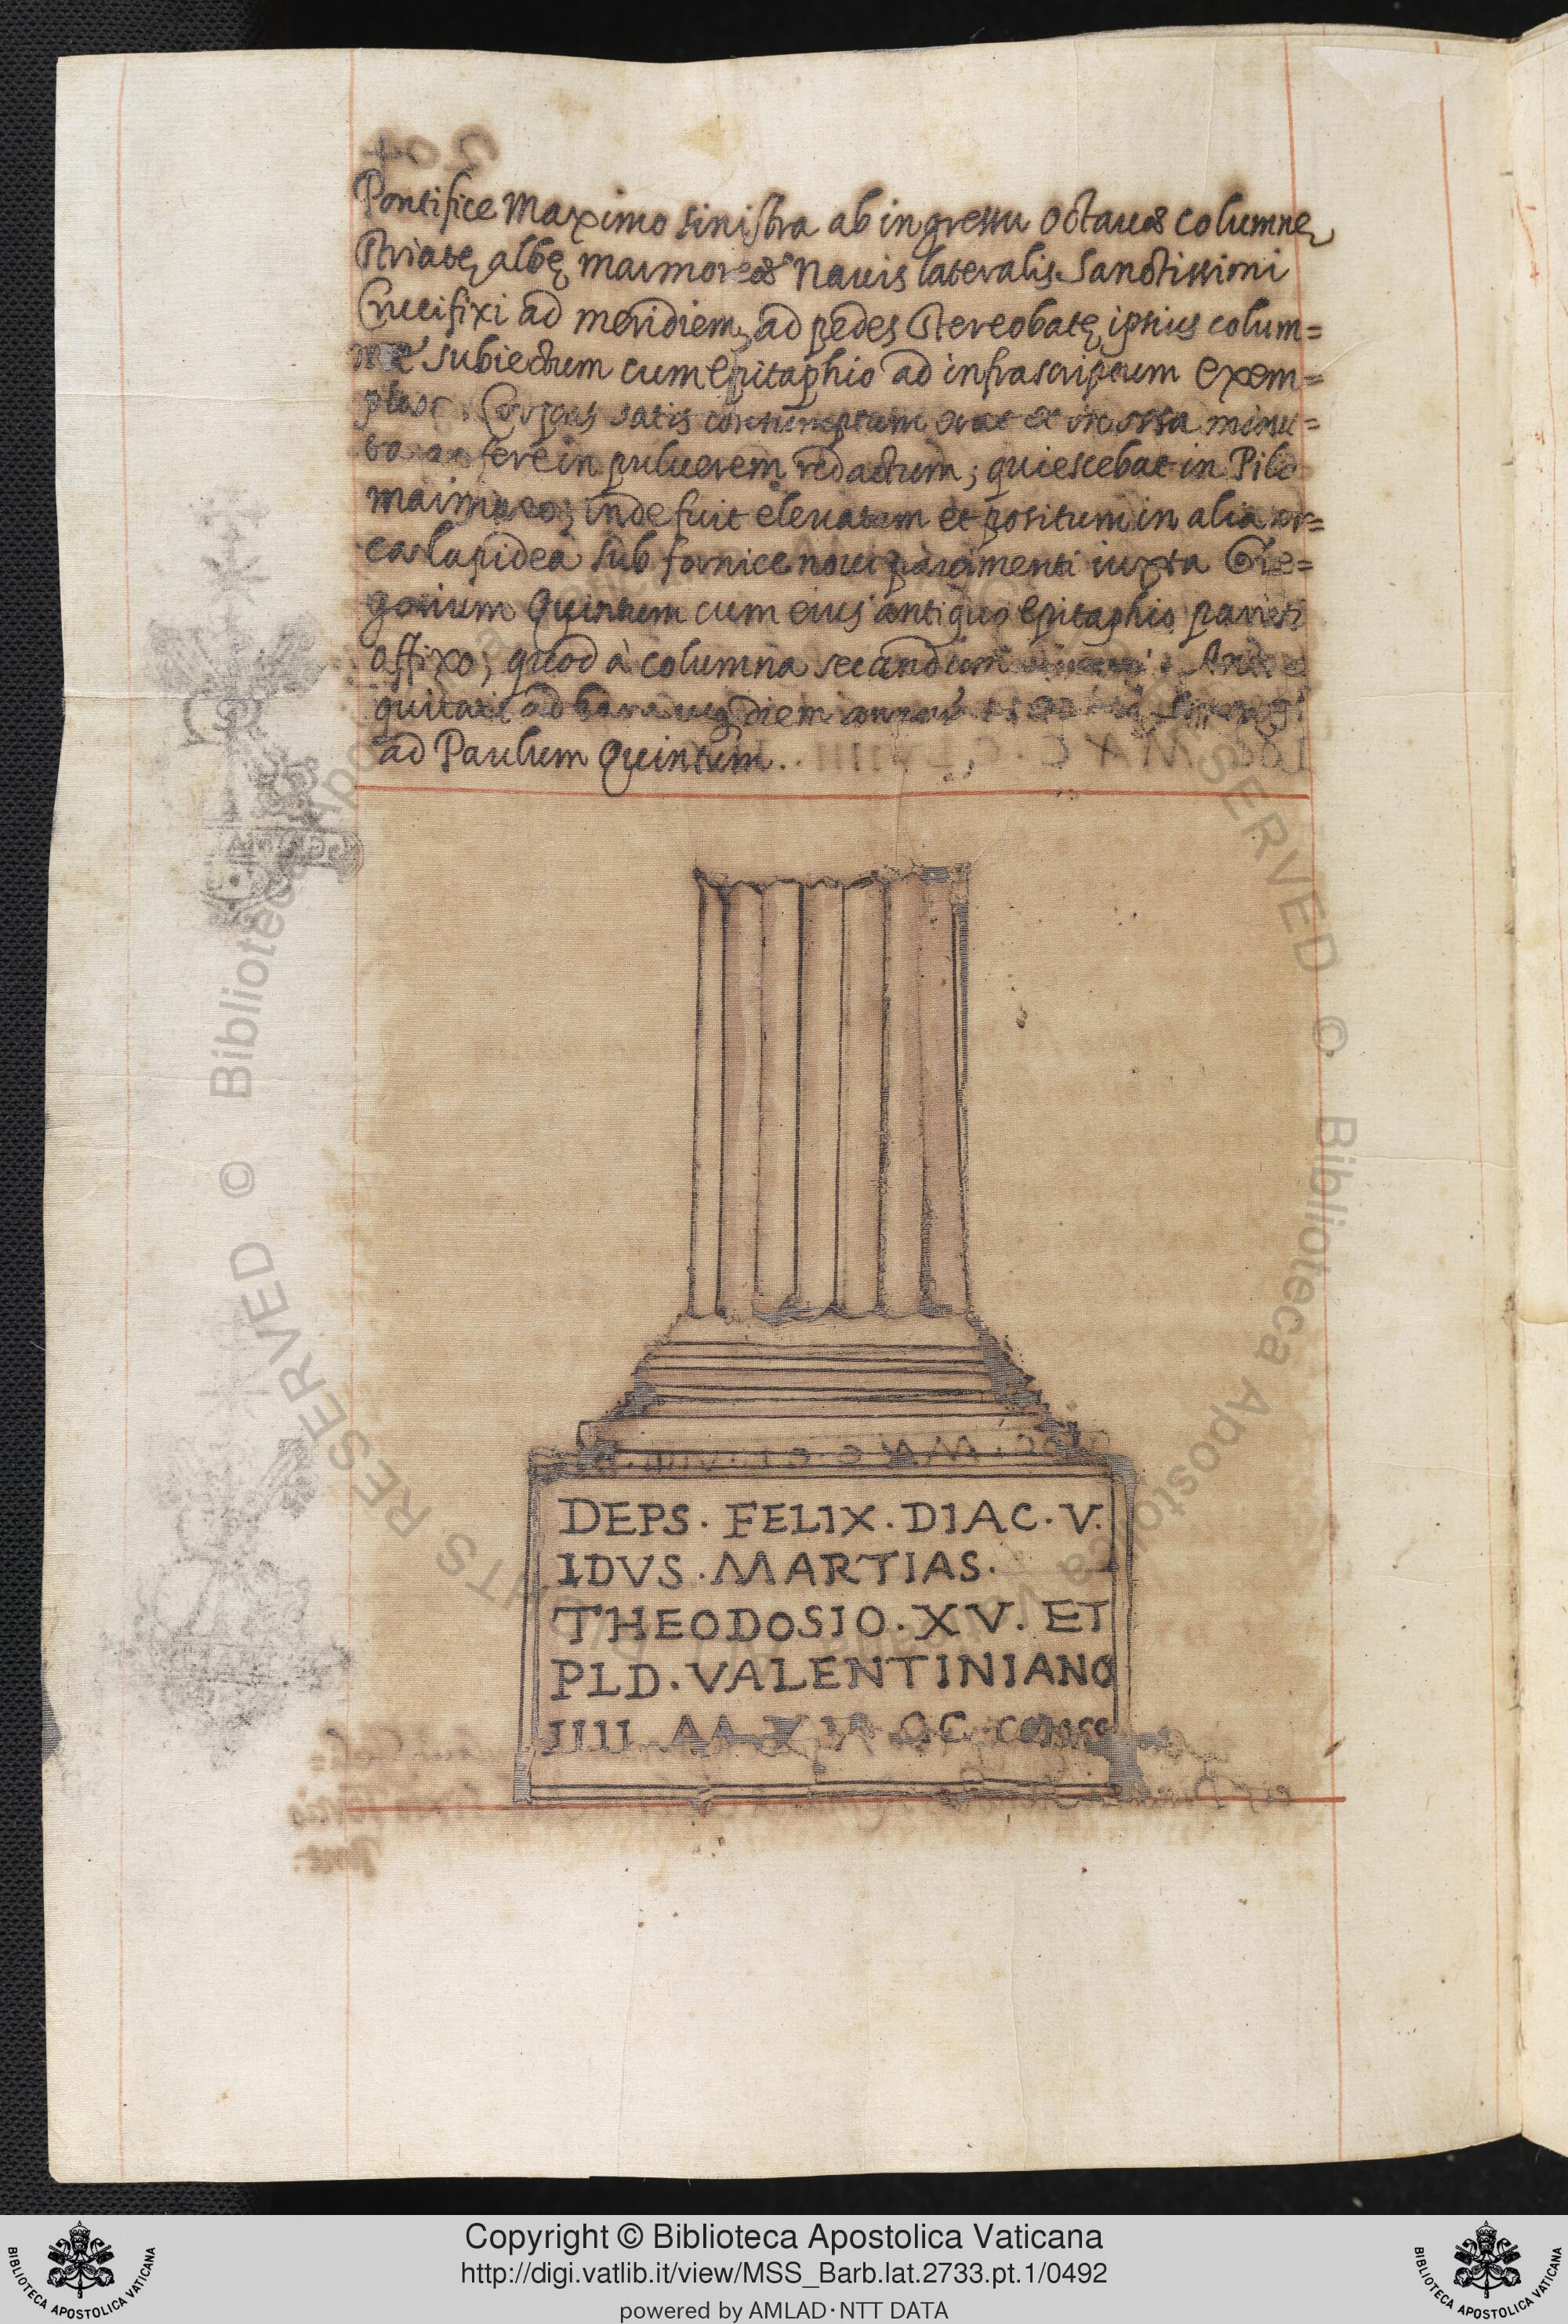 Pontifice Maximo sinistra ab ingressu octauae columnę
striatę albę marmoreae Nauis lateralis Sanctissimi
Crucifixi ad meridiem, ad pedes stereobatę ipsius colum=
nae subiectum cum epitaphio ad infrascriptum exem=
plar. Corpus satis contineptum erat et in ossa minu=
fere in puluerem redactum; quiescebat in Pilo
marmoreo; inde fuit eleuatum et positum in alia ar=
ca lapidea sub fornice noui pauimenti iuxta Gre=
gorium Quintum cum eius antiquo epitaphio parieti
affixo; quod à columna secandum
ad hanc usq diem annos
ad Paulum Quintum.
DEPS. FELIX. DIAC. V.
IDVS. MARTIAS.
THEODOSIO. XV. ET
PLD. VALENTINIANO
IIII
Copyright © Biblioteca Apostolica Vaticana
http://digi.vatlib.it/view/MSS_Barb.lat.2733.pt.1/0492
powered by AMLAD·NTT DATA
BIBLIOTECA APOSTOLICA VATICANA
BIBLIOTECA APOSTOLICA VATICANA